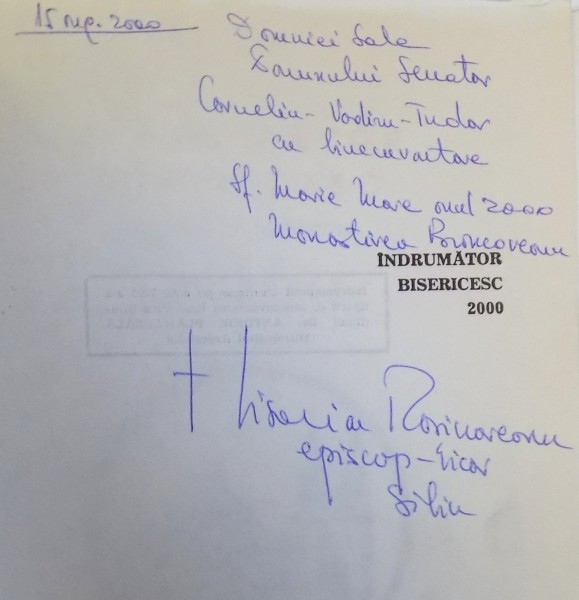 15 aug. 2000
Domniei Sale
Domnului Senator
Corneliu-Vadim-Tudor
cu binecuvantare
Sf. Marie Mare anul 2000
Monastirea Brancoveanu
ÎNDRUMĂTOR
BISERICESC
2000
† Visarion Rasinareanu
episcop-vicar
Sibiu